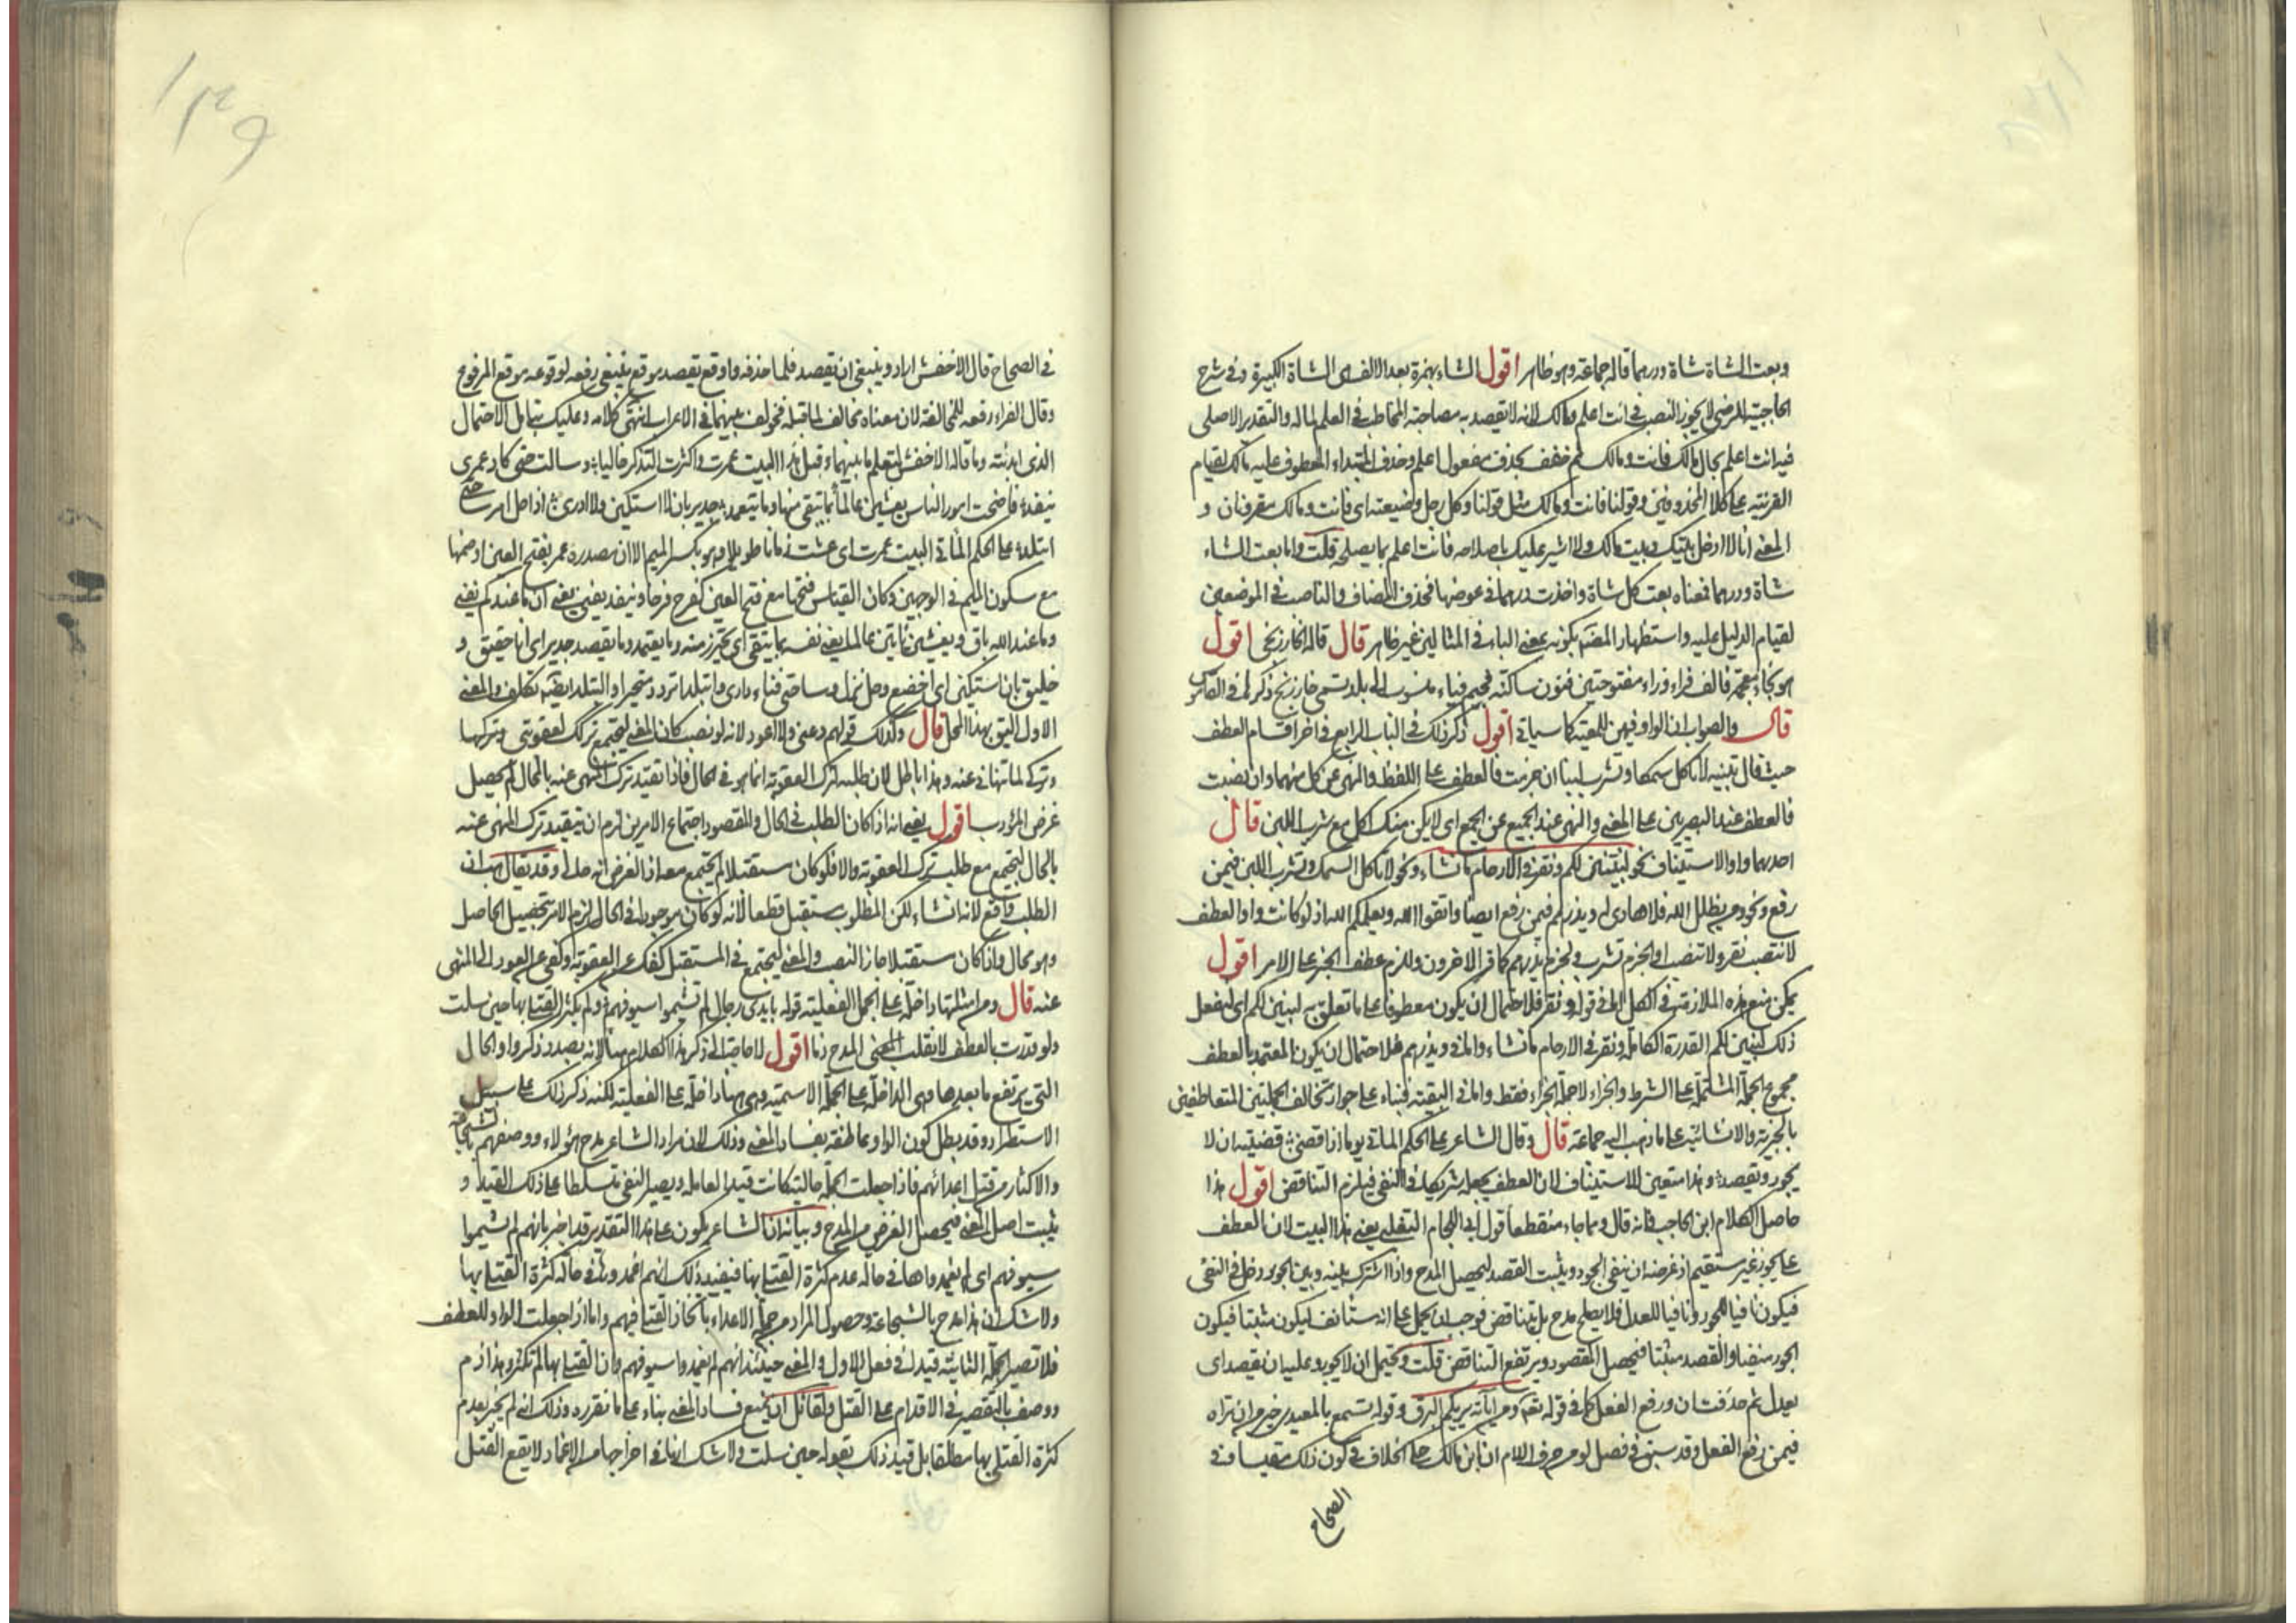 وبعت الشاة شاة ودرهما قاله جماعة وهو ظاهر اقول الشاء بهمزة بعد الالف الشاة الكبيرة وفي شرح
الحاجبية للرضي لا يجوز النصب في انت اعلم ومالك لانه لا يقصد به مصاحبة المخاطب في العلم لماله والتقدير الاصلي
فيه انت اعلم بحال مالك فانت ومالك ثم خفف بحذف مفعول اعلم وحذف المبتداء المعطوف عليه مالك لقيام
القرينة على كلا المحذوفين وقولنا فانت ومالك مثل قولنا وكل رجل وضيعته اي فانت ومالك مقرونان و
المعنى انا لا ادخل بينك وبين مالك ولا اشير عليك باصلاحه فانت اعلم بما يصلحه قلت واما بعت الشاء
شاة ودرهما فمعناه بعت كل شاة واخذت درهما في عوضها فحذف المضاف والناصب في الموضعين
لقيام الدليل عليه واستظهار المصنف بكونه بمعنى الباء في المثالين غير ظاهر قال قاله الخارزنجي اقول
هو بخاء معجمة فالف فراء فزاء مفتوحتين فنون ساكنة فجيم فياء منسوب الى بلد تسمى خارزنج ذكر لي في القاموس
قال والصواب ان الواو فيهن للمعية كما سياتي اقول ذكر ذلك في الباب الرابع في اخر اقسام العطف
حيث قال تنبيه لا تاكل سمكا وتشرب لبنا ان جزمت فالعطف على اللفظ والنهي عن كل منهما وان نصبت
فالعطف عند البصريين على المعنى والنهي عند الجميع عن الجمع اي لا يكن منك اكل مع شرب اللبن قال
احدهما واو الاستيناف نحو لنبين لكم ونقر في الارحام ما نشاء ونحو لا تاكل السمك وتشرب اللبن فيمن
رفع ونحو من يظلل الله فلا هادي له ويذرهم فيمن رفع ايضا واتقوا الله ويعلمكم الله اذ لو كانت واو العطف
لانتصب نقر ولانتصب او انجزم تشرب ولجزم يذرهم كما قرا الاخرون وللزم عطف الخبر على الامر اقول
يمكن منع هذه الملازمة في الكل اما في قوله ونقر فلاحتمال ان يكون معطوفا على ما تعلق به لنبين لكم اي نفعل
ذلك لنبين لكم القدرة الكاملة ونقر في الارحام ما نشاء واما في ويذرهم فلاحتمال ان يكون المعتمد بالعطف
مجموع الجملة المشتملة على الشرط والجزاء لا جملة الجزاء فقط واما في البقية فبناء على جواز تخالف الجملتين المتعاطفتين
بالخبرية والانشائية على ما ذهب اليه جماعة قال وقال الشاعر على الحكم الماتي يوما اذا قضى قضيته ان لا
يجور ويقصد وهذا متعين للاستيناف لان العطف يجعله شريكا في النفي فيلزم التناقض اقول هذا
حاصل كلام ابن الحاجب فانه قال ومما جاء منقطعا قول ابي اللحام التغلبي يعني هذا البيت لان العطف
على يجوز غير مستقيم اذ غرضه ان ينفي الجور ويثبت القصد ليحصل المدح واذا اشترك بينه وبين يجور دخل في النفي
فيكون نافيا للجور ونافيا للعدل فلا يصلح مدح بل يتناقض فوجب ان يحمل على انه مستأنف ليكون مثبتا فيكون
الجور منفيا والقصد مثبتا فيحصل المقصود ويرتفع التناقض قلت ويحتمل ان لا يجور وعليه ان يقصد اي
يعدل ثم حذفت ان ورفع الفعل كما في قوله تعالى ومن آياته يريكم البرق وقوله تسمع بالمعيدي خير من ان تراه
فيمن رفع الفعل وقد سبق في فصل لو من حرف اللام ان ابن مالك حكى الخلاف في كون ذلك مقيسا وفي
الصحاح
في الصحاح قال الاخفش اراد وينبغي ان يقصد فلما حذفه واوقع يقصد موقع ينبغي رفعه لوقوعه موقع المرفوع
وقال الفراء رفعه للمخالفة لان معناه مخالف لما قبله فخولف بينهما في الاعراب انتهى كلامه وعليك بتامل الاحتمال
الذي ابديته وما قاله الاخفش لتعلم ما بينهما وقبل هذا البيت عمرت واكثرت التذكر خاليا وسالت حتى كاد عمري
ينفد فاضحت امور الناس يغشين عالما بما يتقى منها وما يتعمد جدير بان لا استكين ولا ادري اذا حل امر ساحتي
اتبلد على الحكم الماتي البيت عمرت اي عشت زمانا طويلا وهو بكسر الميم الا ان مصدره عمر بفتح العين او ضمها
مع سكون الميم في الوجهين وكان القياس فتحها مع فتح العين كفرح فرحا وينفد يفنى يعني ان ما عندكم يفنى
وما عند الله باق ويغشين ياتين عالما يعني نفسه بما يتقى اي يحترز منه وما يعتمد وما يقصد جدير اي انا حقيق و
خليق بان استكين اي اخضع وحل نزل وساحتي فناء داري واتبلد اتردد متحيرا والتبلد ايضا تكلف والمعنى
الاول اليق بهذا المحل قال وكذلك قولهم دعني ولا اعود لانه لو نصب كان المعنى ليجتمع تركك لعقوبتي وتركها
وترك لما تنهاني عنه وهذا باطل لان طلبه لترك العقوبة انما هو في الحال فاذا تقيد ترك المنهي عنه بالحال لم يحصل
غرض المؤدب اقول يعني انه اذا كان الطلب في الحال والمقصود اجتماع الامرين لزم ان يتقيد ترك المنهي عنه
بالحال ليجتمع مع طلب ترك العقوبة والا فلو كان مستقبلا لم يجتمع معه اذ الغرض انه حالي وقد يقال هب ان
الطلب واقع لانه انشاء لكن المطلوب مستقبل قطعا لانه لو كان موجودا في الحال لزم الامر بتحصيل الحاصل
وهو محال واذا كان مستقبلا جاز النصب والمعنى ليجتمع في المستقبل كفك عن العقوبة وكفي عن العود الى المنهي
عنه قال ومن امثلتها داخلة على الجمل الفعلية قوله بايدي رجال لم تشيموا سيوفهم ولم يكثر القتلى بها حين سلت
ولو قدرت بالعطف لانقلب المعنى المدح ذما اقول لا حاجة الى ذكر هذا الكلام هنا لانه بصدد ذكر واو الحال
التي يرتفع ما بعدها وهي الداخلة على الجملة الاسمية وهي هنا داخلة على الفعلية لكنه ذكر ذلك على سبيل
الاستطراد وقد يبطل كون الواو عاطفة بفساد المعنى وذلك لان مراد الشاعر مدح هؤلاء ووصفهم بالشجاعة
والاكثار من قتل اعدائهم فاذا جعلت الجملة حالية كانت قيدا لعامله ويصير النفي متسلطا على ذلك القيد و
يثبت اصل المعنى فيحصل الغرض من المدح وبيانه ان الشاعر يكون على هذا التقدير قد اخبر بانهم لم يشيموا
سيوفهم اي لم يغمدواها في حالة عدم كثرة القتلى بها فيفيد ذلك انهم اغمدوها في حالة كثرة القتلى بها
ولا شك ان هذا مدح بالشجاعة وحصول المراد من جملة الاعداء بانجاز القتل فيهم واما اذا جعلت الواو للعطف
فلا تصير الجملة الثانية قيدا في فعل الاول والمعنى حينئذ انهم لم يغمدوا سيوفهم وان القتلى بها لم تكثر وهذا ذم
ووصف بالتقصير في الاقدام على القتل ولقائل ان يمنع فساد المعنى بناء على ما تقرره وذلك انه لم يخبر بعدم
كثرة القتلى بها مطلقا بل قيد ذلك بقوله حين سلت ولا شك ان في اخراجها من الاغماد لا يقع القتل
١٣٩